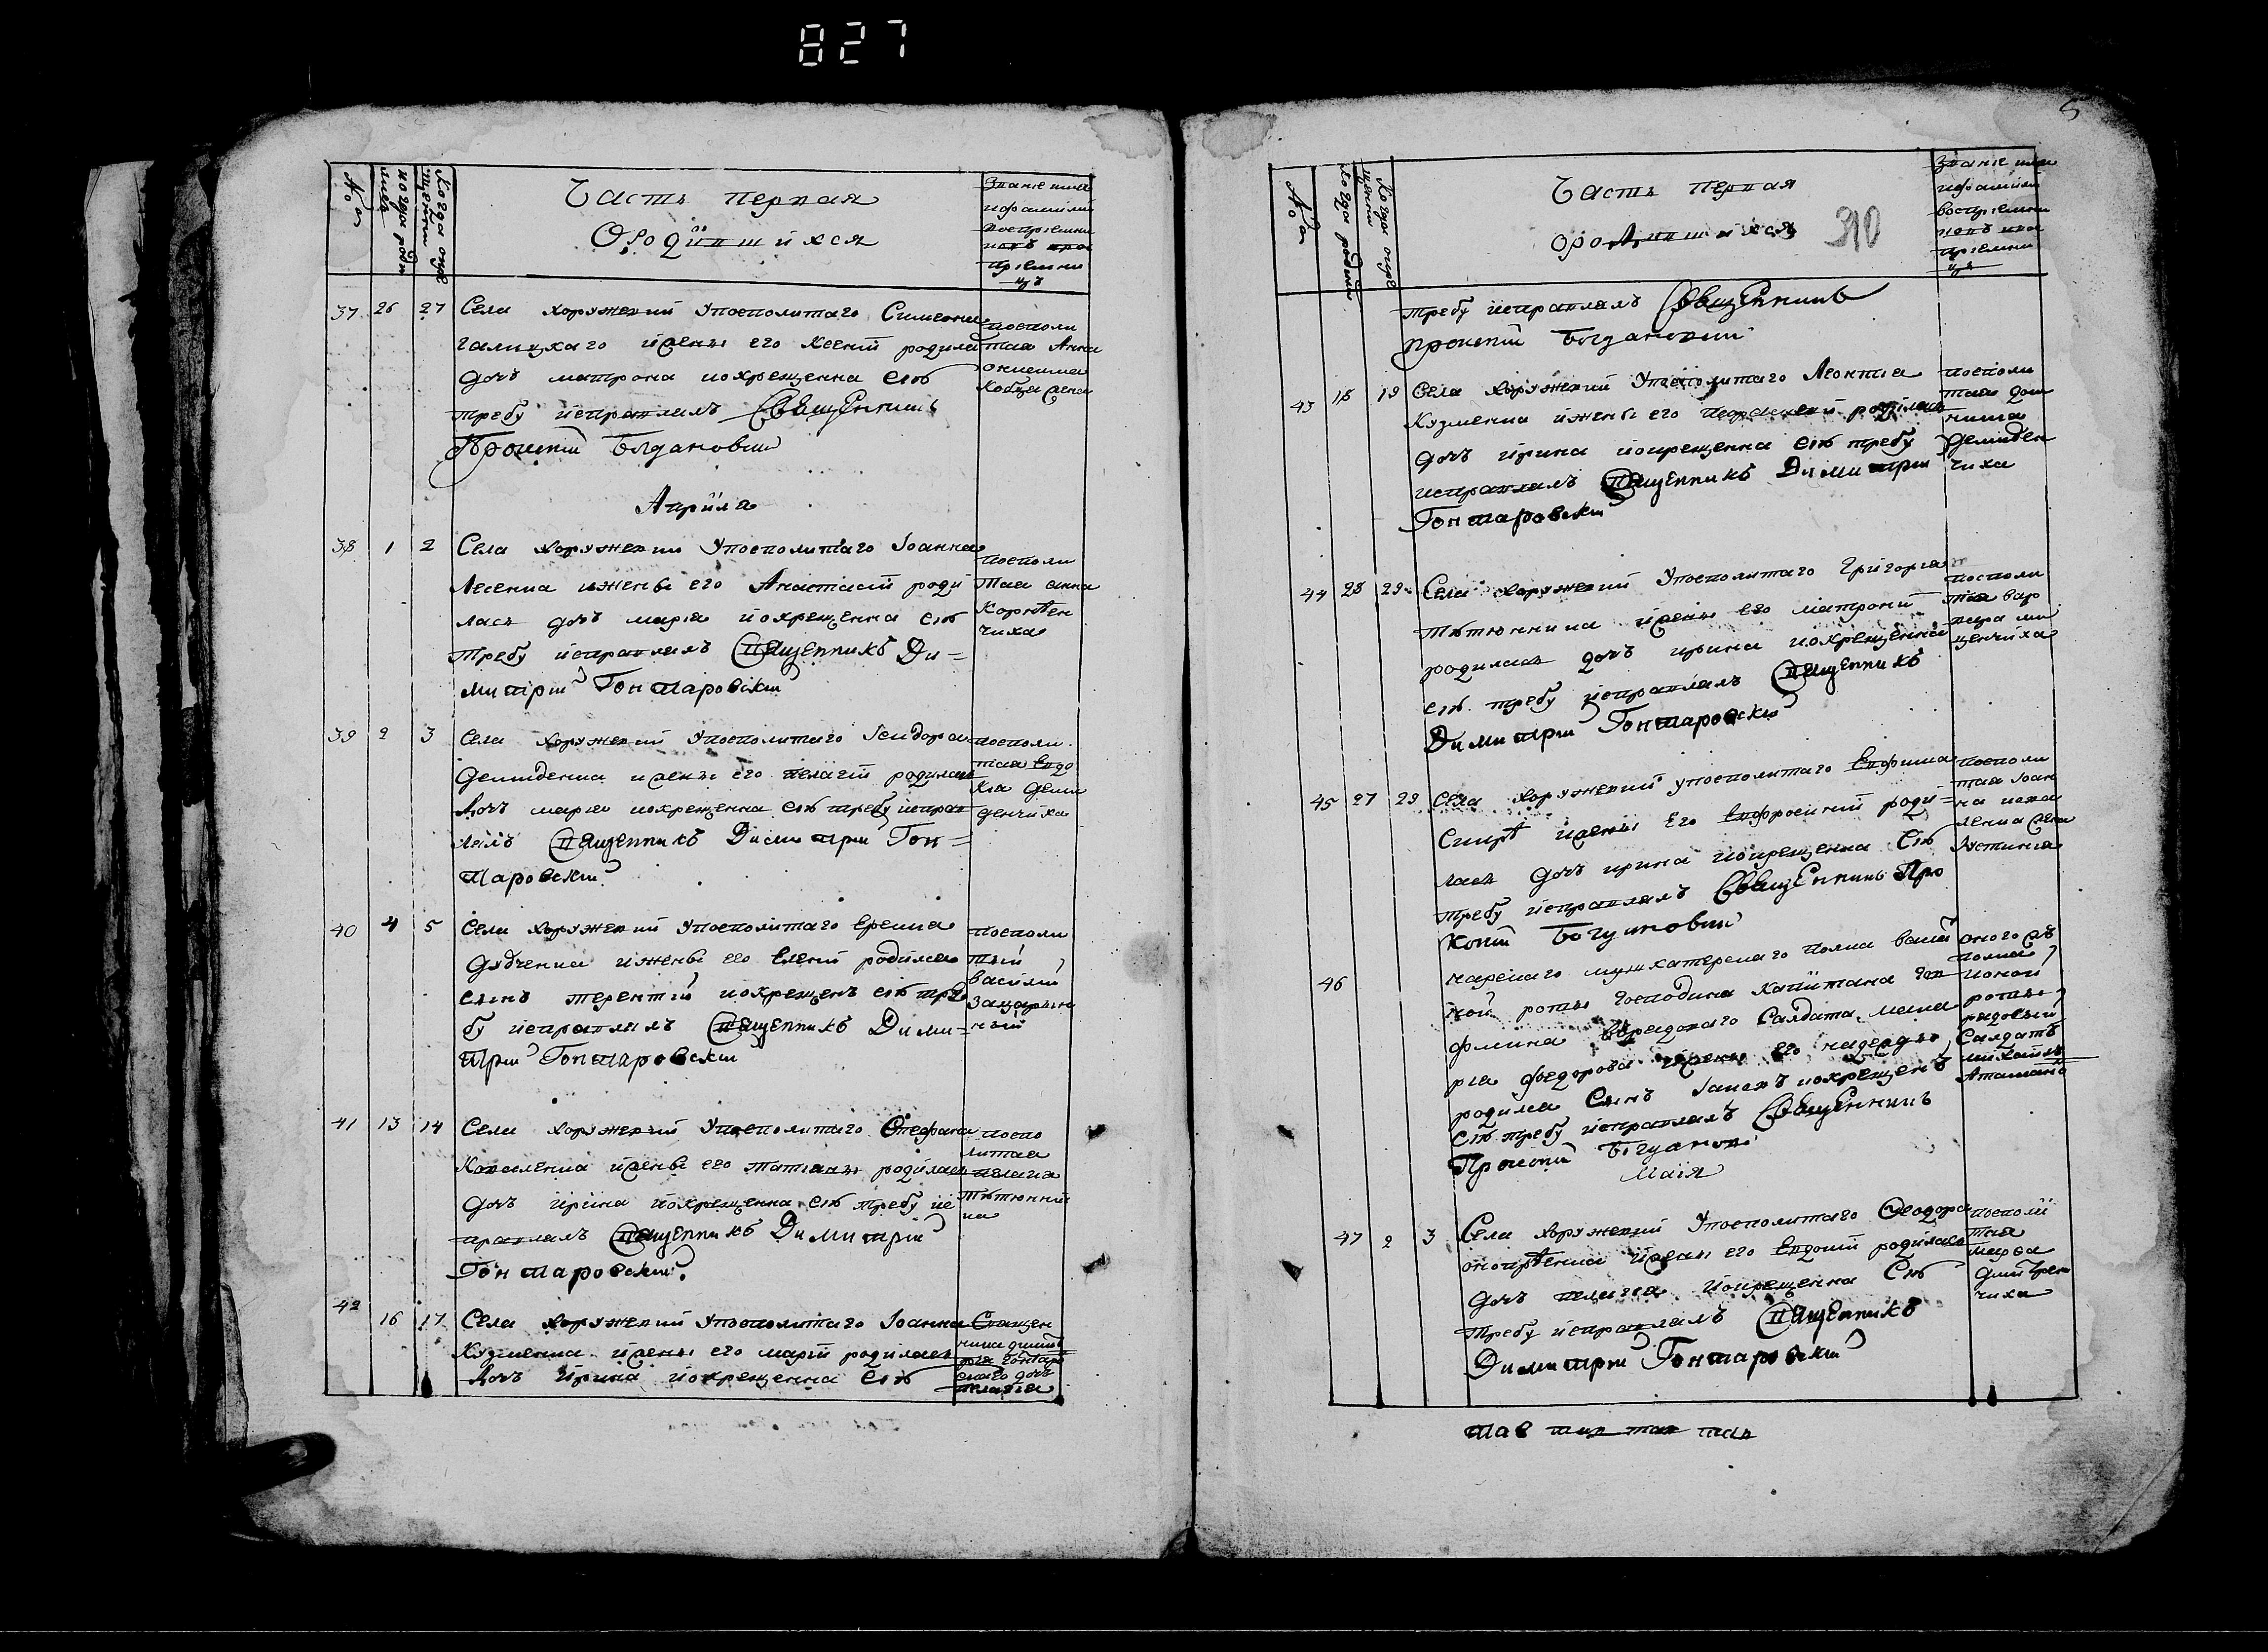 827
№
когда роди
лися
Когда окре
щенни
Часть первая
О родившихся
Званіе имя
и фамилія
воспріемни
ковъ и во
спріемни
цъ
37 26 27 Села Хоружевки у посполитаго Симеона
Галицкаго и жены его Ксеніи родила
дочь матрона и окрещенна сію
требу исправлялъ Священникъ
Прокопій Богдановичъ
посполи
тая Анна
Кобца жена
Апріля
38 1 2 Села Хоружевки у посполитаго Іоанна
Лесенка и жены его Анастасіи роди
лась дочь марія и окрещенна сію
требу исправлялъ Священникъ Ди=
митрій Гонтаровскій
посполи
тая анна
Корнѣен
чиха
39 2 3 Села Хоружевки у посполитаго Ісидора
Демиденка и жены его пелагіи родилась
дочь марія и окрещенна сію требу исправ
лялъ Священникъ Димитрій Гон=
таровскій
посполи
тая Евдо
кія деми
денчиха
40 4 5 Села Хоружевки у посполитаго Ереміа
Дядченка и жены его Елены родился
сынъ терентій и окрещенъ сію тре
бу исправлялъ Священникъ Дими=
трій Гонтаровскій
посполи
тый
василій
41 13 14 Села Хоружевки у посполитаго Стефана
Коваленка и жены его татіаны родилась
дочь ирина и окрещенна сію требу ис
правлялъ Священникъ Димитрій
Гонтаровскій.
поспо
литая
пелагія
Тѣтюнни
ка
42 16 17 Села Хоружевки у посполитаго Іоанна
Кузменка и жены его маріи родилась
дочь Ирина и окрещенна сію
Священ
ника дими
трія Гонтаро
вскаго дочь
пелагія
5
№
когда родили
Когда окре
щенни
Часть первая
о родившихся
310
Званіе имя
и фамилія
воспріемни
ковъ и во
спріемни
цъ
требу исправлялъ Священникъ
Прокопій Богдановичъ
43 18 19 Села Хоружевки у посполитаго Леонтіа
Кузменка и жены его родилась
дочь ирина и окрещенна сію требу
исправлялъ Священникъ Димитрій
Гонтаровскій
посполи
тая дом
ника
Демиден
чиха
44 28 29 Села Хоружевки у посполитаго Григоріа
Тѣтюнника и жены его матроны
родилась дочь ирина и окрещенна
сію требу исправлялъ Священникъ
Димитрій Гонтаровскій
посполи
тая вар
вара ми
ценчиха
45 27 29 Села Хоружевки у посполитаго Евфима
и жены его Евфросиніи роди=
лась дочь ирина и окрещенна сію
требу исправлялъ Священникъ Про
копій Богдановичъ
посполи
тая Іоан
на кова
ленка жена
Устиніа
46 мушкатерскаго полка
ной роты Господина Капитана
рядоваго Салдата
Федорова и жены его надежды
родился Сынъ и окрещенъ
сію требу исправлялъ Священникъ
Прокопій Богдановичъ
оного жъ
полка
и оной
роты
рядовый
Салдатъ
михаилъ
Маія
47 2 3 Села Хоружевки у посполитаго Феодора
и жены его Евдокіи родилась
дочь пелагіа и окрещенна Сію
требу исправлялъ Священникъ
Димитрій Гонтаровскій
посполи
тая
марфа
дмитрен
чиха